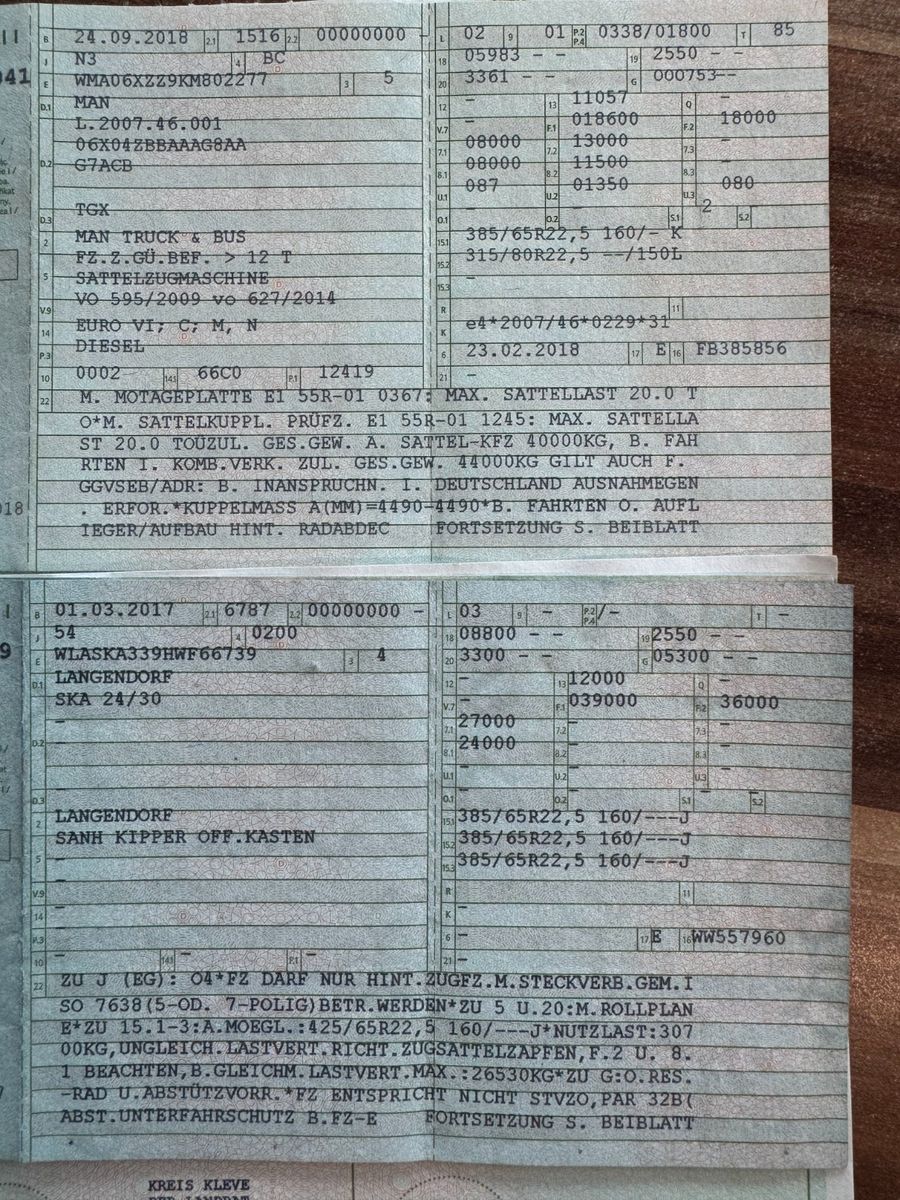 B 24.09.2018 2.1 1516 2.2 00000000 - L 02 9 01 P.2 P.4 0338/01800 T 85
J N3 4 BC 18 05983 - - 19 2550 - -
E WMA06XZZ9KM802277 3 5 20 3361 - - G 000753--
041
D.1 MAN 12 - 13 11057 Q -
L.2007.46.001 V.7 - F.1 018600 F.2 18000
06X04ZBBAAAG8AA 7.1 08000 7.2 13000 7.3 -
D.2 G7ACB 8.1 08000 8.2 11500 8.3 -
U.1 087 U.2 01350 U.3 080
D.3 TGX O.1 - O.2 - S.1 2 S.2
2 MAN TRUCK & BUS 15.1 385/65R22,5 160/- K
FZ.Z.GÜ.BEF. > 12 T 15.2 315/80R22,5 --/150L
5 SATTELZUGMASCHINE 15.3 -
V.9 VO 595/2009 vo 627/2014 R 11
14 EURO VI; C; M, N K e4*2007/46*0229*31
P.3 DIESEL 6 23.02.2018 17 E 16 FB385856
10 0002 14.1 66C0 P.1 12419 21 -
22 M. MOTAGEPLATTE E1 55R-01 0367: MAX. SATTELLAST 20.0 T
O*M. SATTELKUPPL. PRÜFZ. E1 55R-01 1245: MAX. SATTELLA
ST 20.0 TOÜZUL. GES.GEW. A. SATTEL-KFZ 40000KG, B. FAH
RTEN I. KOMB.VERK. ZUL. GES.GEW. 44000KG GILT AUCH F.
GGVSEB/ADR: B. INANSPRUCHN. I. DEUTSCHLAND AUSNAHMEGEN
. ERFOR.*KUPPELMASS A(MM)=4490-4490*B. FAHRTEN O. AUFL
018
IEGER/AUFBAU HINT. RADABDEC FORTSETZUNG S. BEIBLATT
B 01.03.2017 2.1 6787 2.2 00000000 - L 03 9 - P.2 P.4 /- T -
J 54 4 0200 18 08800 - - 19 2550 - -
9 E WLASKA339HWF66739 3 4 20 3300 - - G 05300 - -
D.1 LANGENDORF 12 - 13 12000 Q -
SKA 24/30 V.7 - F.1 039000 F.2 36000
- 7.1 27000 7.2 - 7.3 -
D.2 - 8.1 24000 8.2 - 8.3 -
U.1 - U.2 - U.3 -
D.3 O.1 - O.2 - S.1 - S.2 -
2 LANGENDORF 15.1 385/65R22,5 160/---J
SANH KIPPER OFF.KASTEN 15.2 385/65R22,5 160/---J
5 - 15.3 385/65R22,5 160/---J
V.9 - R - 11
14 - K -
P.3 - 6 - 17 E 16 WW557960
10 - 14.1 - P.1 - 21 -
22 ZU J (EG): O4*FZ DARF NUR HINT.ZUGFZ.M.STECKVERB.GEM.I
SO 7638(5-OD. 7-POLIG)BETR.WERDEN*ZU 5 U.20:M.ROLLPLAN
E*ZU 15.1-3:A.MOEGL.:425/65R22,5 160/---J*NUTZLAST:307
00KG,UNGLEICH.LASTVERT.RICHT.ZUGSATTELZAPFEN,F.2 U. 8.
1 BEACHTEN,B.GLEICHM.LASTVERT.MAX.:26530KG*ZU G:O.RES.
-RAD U.ABSTÜTZVORR.*FZ ENTSPRICHT NICHT STVZO,PAR 32B(
ABST.UNTERFAHRSCHUTZ B.FZ-E FORTSETZUNG S. BEIBLATT
KREIS KLEVE
DER LANDRAT